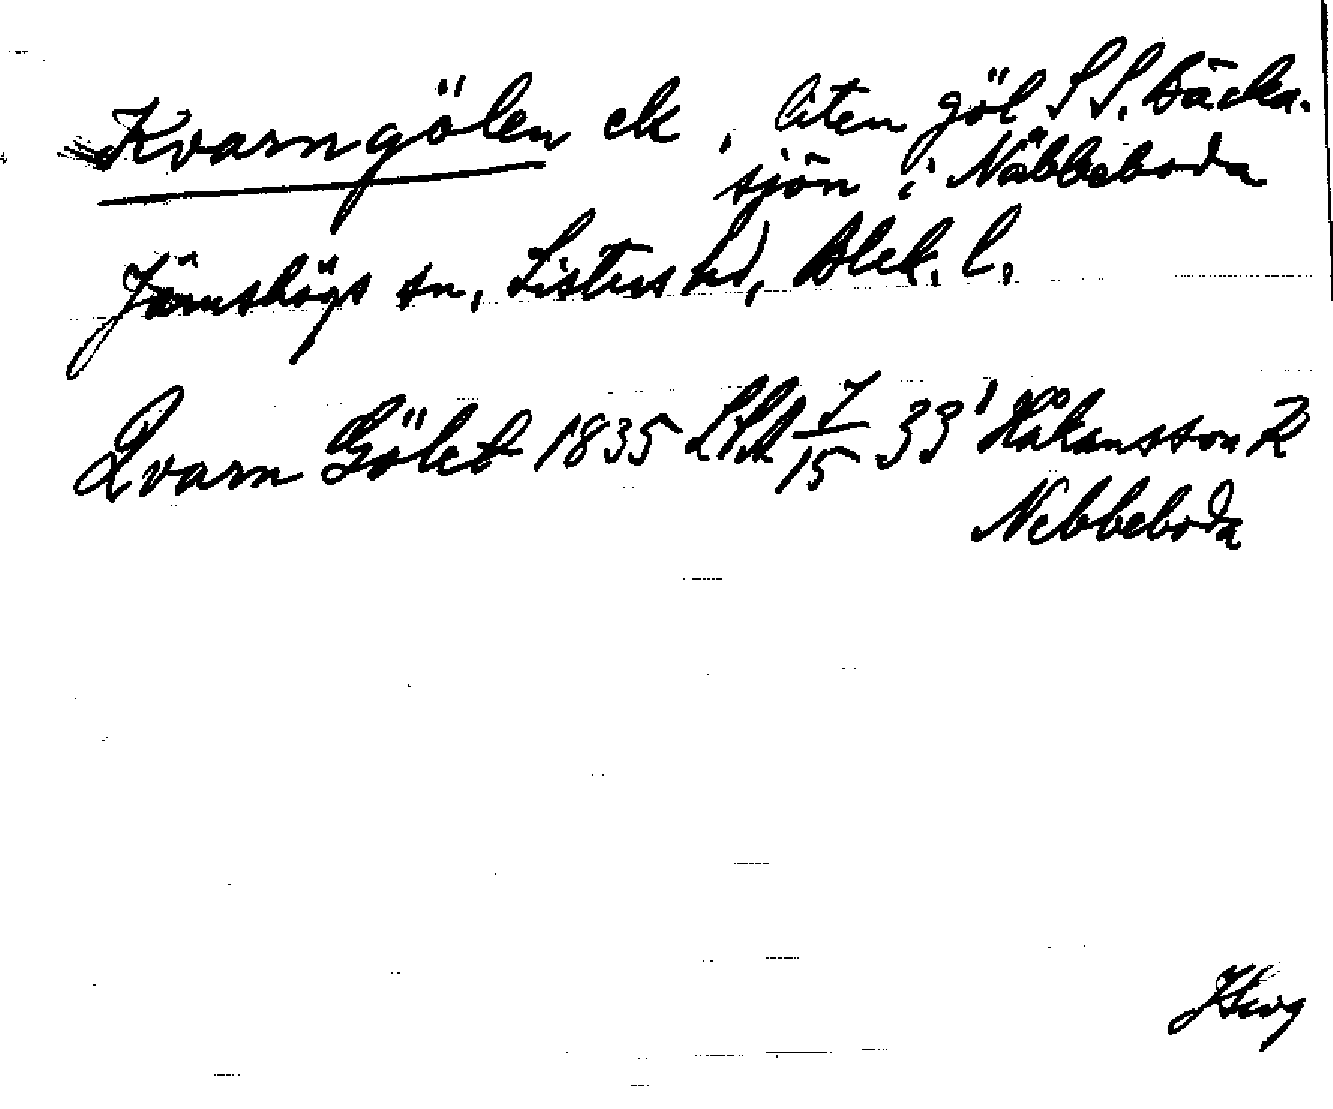 Kvarngölen ek, liten göl S S. Bäcka-
sjön i Näbbeboda
Jämshögs sn, Listers hd, Blek. l.
Qvarn Gölet 1835 LSA 7/15 33' Håkansson R
Nebbeboda